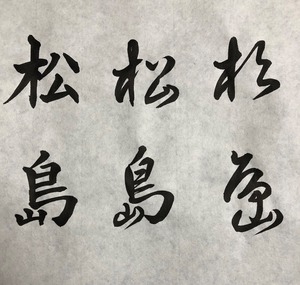 松松松
島島島